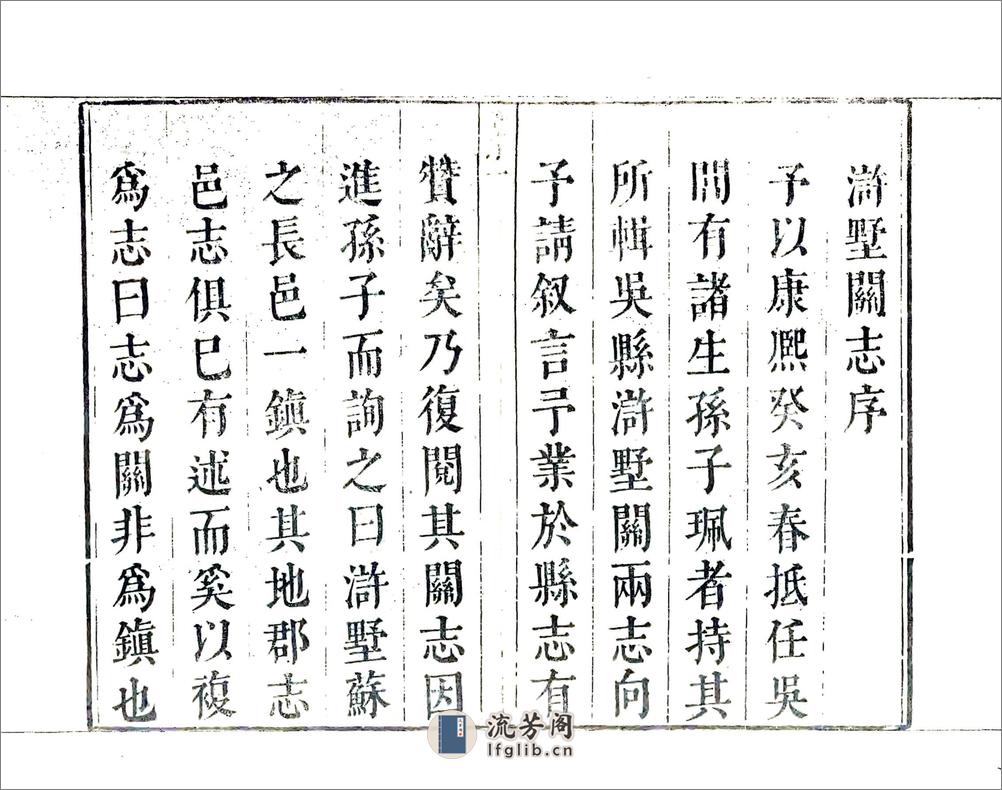 滸墅關志序
予以康熙癸亥春抵任吳
間有諸生孫子珮者持其
所輯吳縣滸墅關兩志向
予請叙言予業於縣志有
贊辭矣乃復閱其關志因
進孫子而詢之曰滸墅蘇
之長邑一鎮也其地郡志
邑志俱巳有述而奚以複
爲志曰志爲關非爲鎮也
流芳阁
lfglib.cn